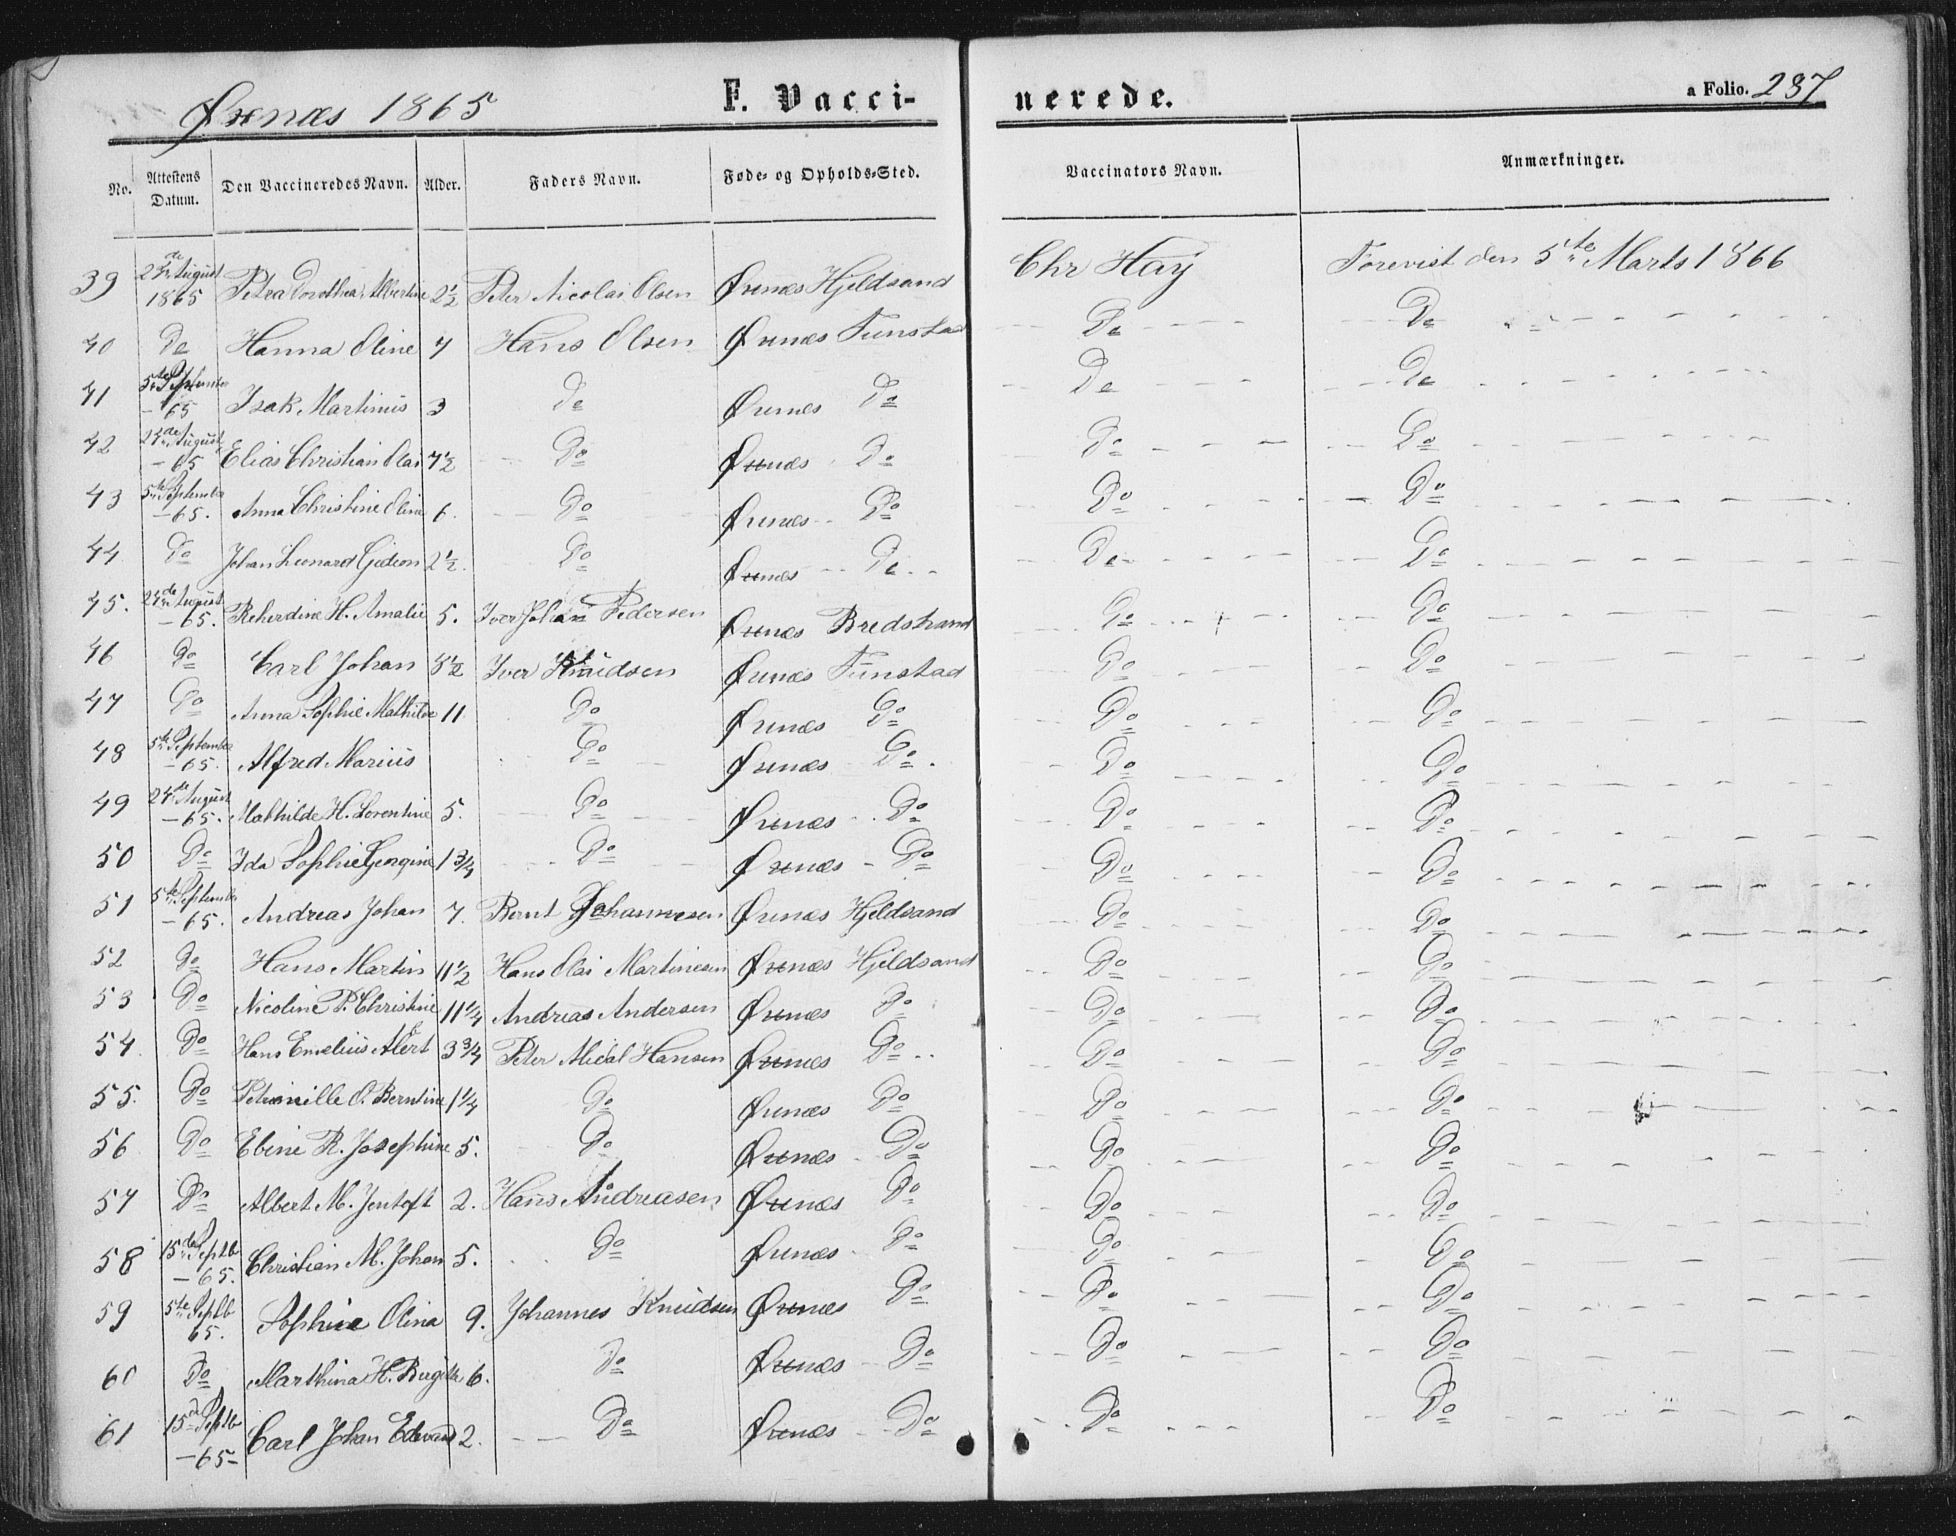 Øxnæs 1865 F. Vacci- nerede. a Folio. 237
No. Attestens Datum. Den Vaccineredes Navn. Alder. Faders Navn. Føde- og Opholds-Sted. Vaccinators Navn. Anmærkninger.
39 24de August 1865 Petra Dorothea Albertine 2½ Peter Nicolai Olsen Øxnæs Hjeldsand Chr Hay Forevist den 5te Marts 1866
40 Do Hanna Oline 4 Hans Olsen Øxnæs Tunstad Do Do
41 5te September -65 Isak Martinus 3 Do Øxnæs Do Do Do
42 24de August -65 Elias Christian Olai 7½ Do Øxnæs Do Do Do
43 5te September -65. Anna Christine Oline 6. Do Øxnæs Do Do Do
44 Do Johan Leonard Gideon 2½. Do Øxnæs Do Do Do
45. 24de August -65. H. Amalie 5. Iver Johan Pedersen Øxnæs Bredstrand Do Do
46 Do Carl Johan 8½ Iver Knudsen Øxnæs Tunstad Do Do
47 Do Anna Sophie Mathilde 11 Do Øxnæs Do Do Do
48 5te September -65. Alfred Marius Do Øxnæs Do. Do Do
49 24de August -65. Mathilde H. Lorentine 5. Do Øxnæs Do Do Do
50 Do Ida Sophie Georgine 1¾ Do Øxnæs Do Do Do
51 5te September -65. Andreas Johan 7. Bernt Johannesen Øxnæs Hjeldsand Do Do
52 Do Hans Martin 11½ Hans Olai Martinesen Øxnæs Hjeldsand Do Do
53 Do Nicoline P. Christine 11¼ Andreas Andersen Øxnæs Do Do Do
54 Do Hans Emelius Albert 3¾ Peter Mical Hansen Øxnæs Do Do Do
55. Do Petronille O. Berntine 1¼ Do Øxnæs Do Do Do
56 Do Ebine R. Josephine 5. Do Øxnæs Do Do Do
57 Do Albert M. Jentoft 2. Hans Andreasen Øxnæs Do Do Do
58 15de Septb -65. Christian M. Johan 5. Do Øxnæs Do Do Do
59 5te Septb 65. Sophie Olina 9. Johannes Knudsen Øxnæs Do Do Do
60 Do Marthina H. Birgitte 6. Do Øxnæs Do Do Do
61 15de Septb -65- Carl Johan Edevard 2. Do Øxnæs Do Do Do